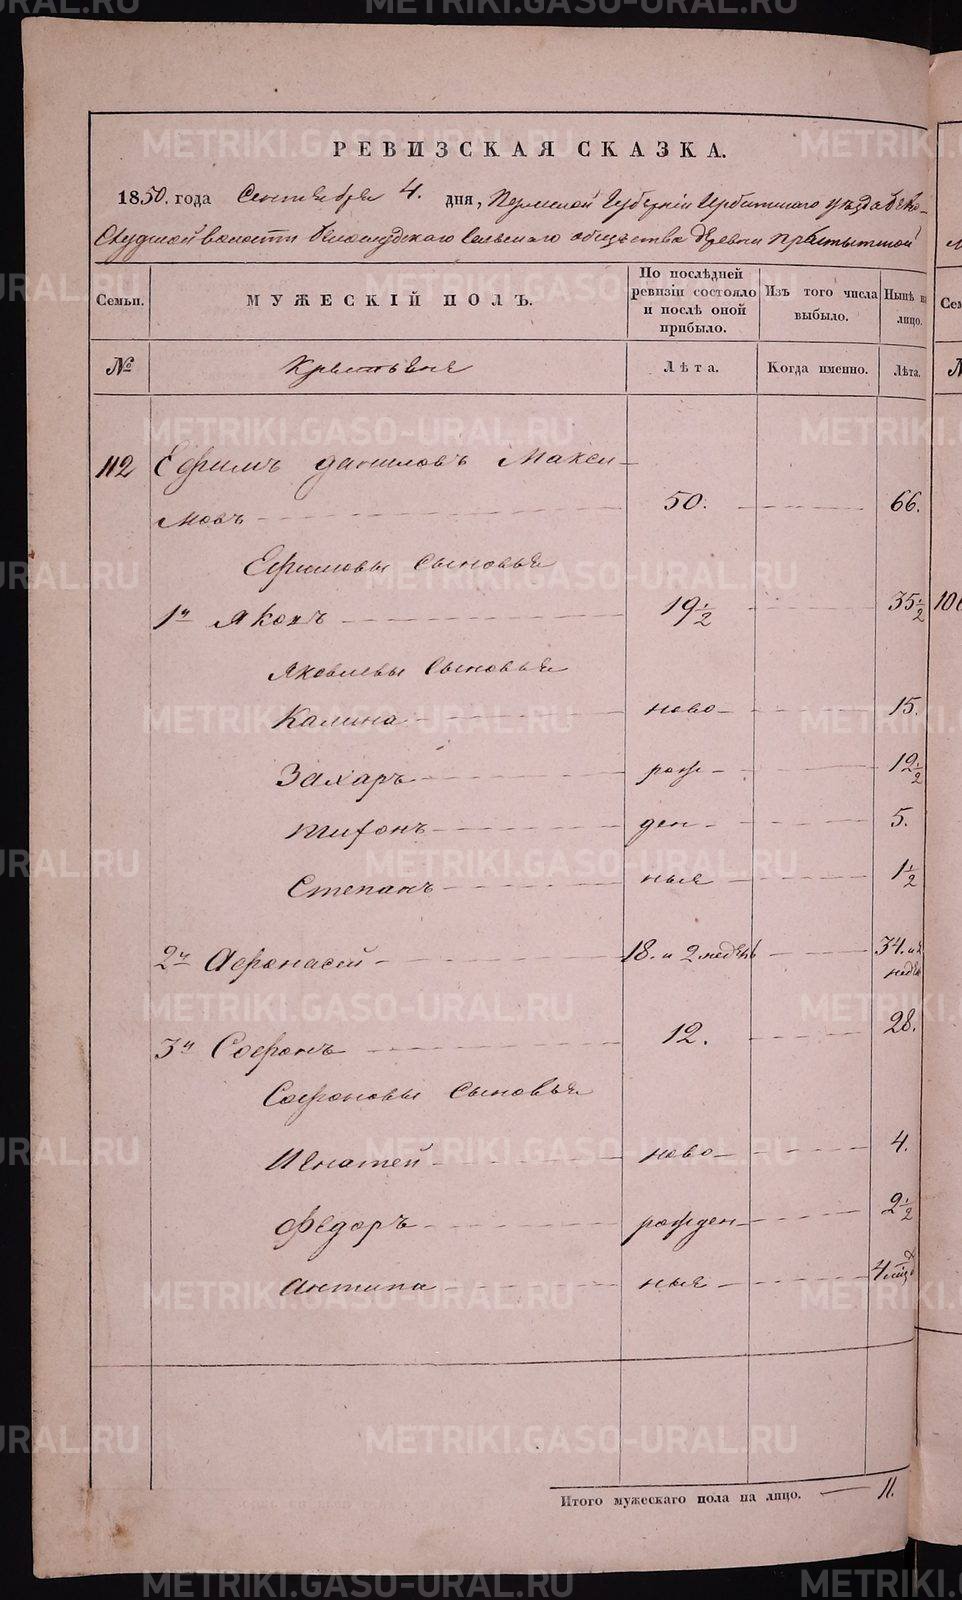 METRIKI.GASO-URAL.RU
РЕВИЗСКАЯ СКАЗКА.
1850. года Сентября 4. дня, Пермской Губерніи Ирбитскаго уѣзда Бѣло-
Слудской волости Белослудскаго Сельскаго общества деревни
Семьи.
МУЖЕСКІЙ ПОЛЪ.
По послѣдней
ревизіи состояло
и послѣ оной
прибыло.
Изъ того числа
выбыло.
Нынѣ на
лицо.
№
Крестьяне
Лѣта.
Когда именно.
Лѣта.
112 Ефимъ Даниловъ Макси-
мовъ 50. 66.
Ефимовы сыновья
1й Яковъ 19 1/2 35 1/2
Яковлевы сыновья
Калина ново 15.
Захаръ рож 12 1/2
Тифонъ ден 5.
Степанъ ныя 1 1/2
2й Афонасей 18. и 2 недѣль 34. и 2
недѣл
3й Софонъ 12. 28.
Софоновы сыновья
Игнатей ново 4.
Федоръ рожден 2 1/2
Антипа ныя 4 мѣсяц
Итого мужескаго пола на лицо. 11.